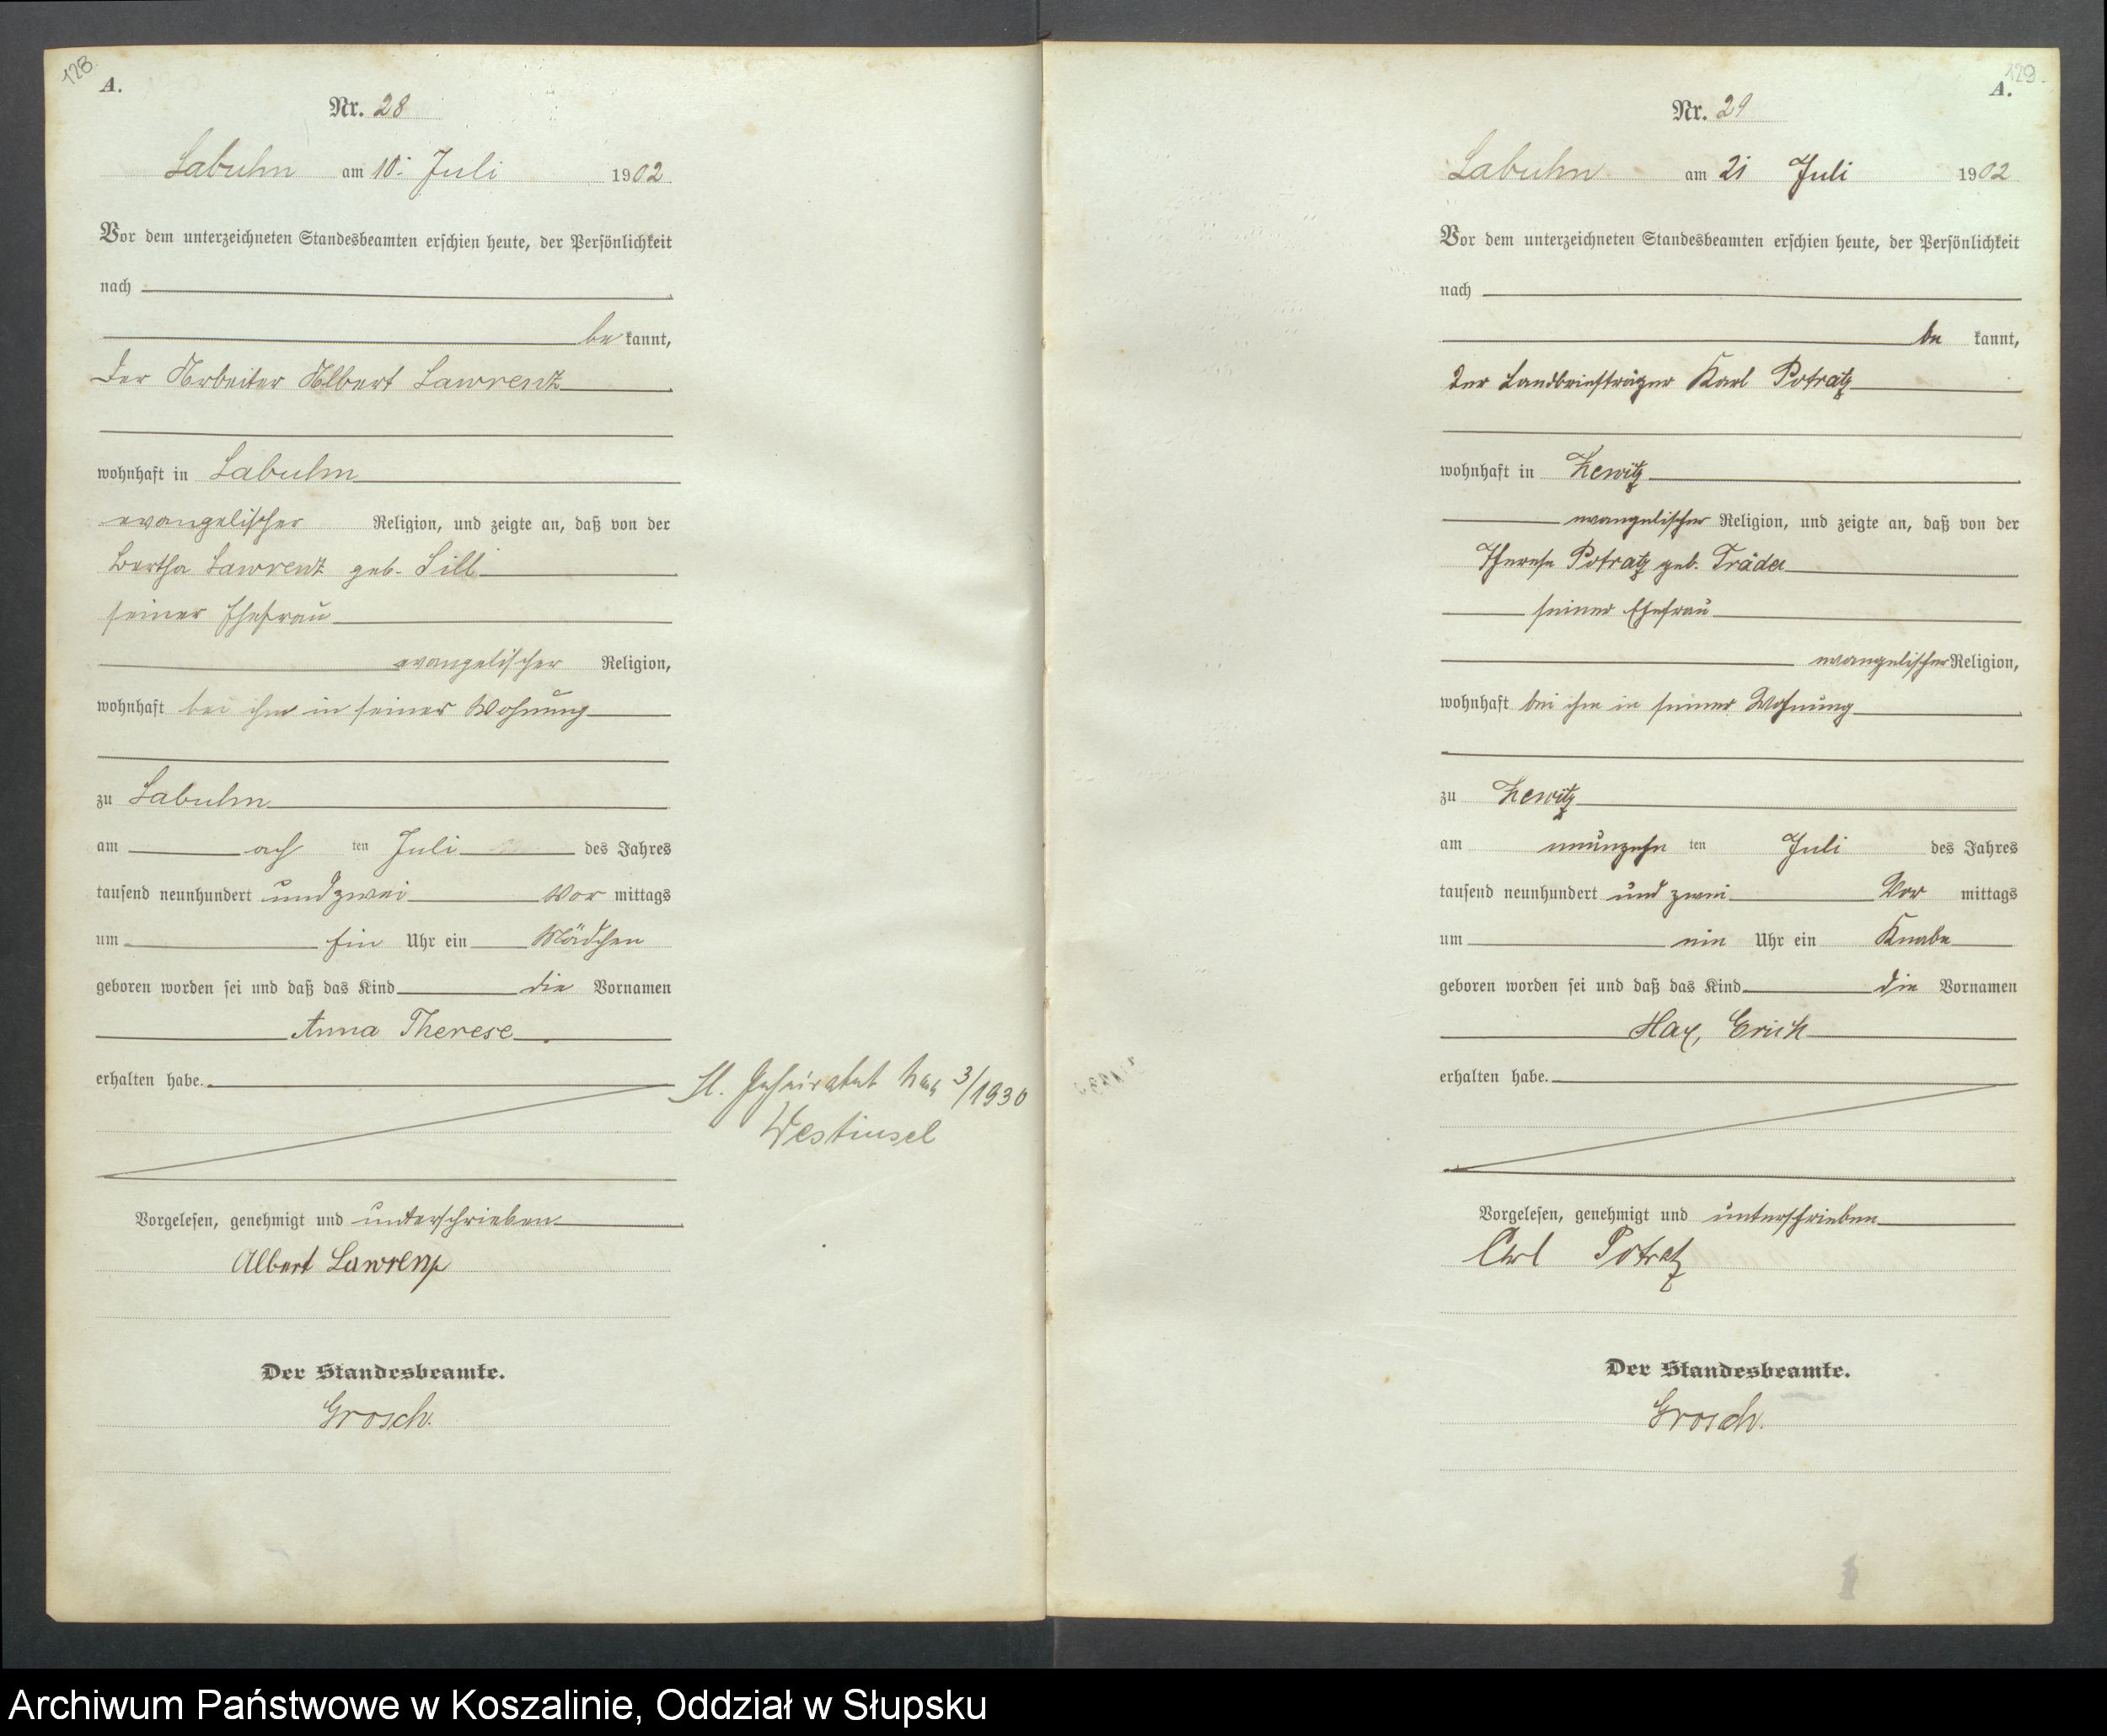 128
A.
Nr. 28
Labuhn am 10. Juli 1902
Vor dem unterzeichneten Standesbeamten erschien heute, der Persönlichkeit
nach
be kannt,
der Arbeiter Albert Lawrenz
wohnhaft in Labuhn
evangelischer Religion, und zeigte an, daß von der
Bertha Lawrenz geb. Sill
seiner Ehefrau
evangelischer Religion,
wohnhaft bei ihm in seiner Wohnung
zu Labuhn
am ach ten Juli des Jahres
tausend neunhundert und zwei Vor mittags
um Ein Uhr ein Mädchen
geboren worden sei und daß das Kind die Vornamen
Anna Therese
erhalten habe.
Geheiratet 3/1930
Vorgelesen, genehmigt und unterschrieben
Albert Lawrenz
Der Standesbeamte.
Grosch.
129.
A.
Nr. 29
Labuhn am 21 Juli 1902
Vor dem unterzeichneten Standesbeamten erschien heute, der Persönlichkeit
nach
be kannt,
der Landbriefträger Karl Potratz
wohnhaft in Zewitz
evangelischer Religion, und zeigte an, daß von der
Therese Potratz geb. Träder
seiner Ehefrau
evangelischer Religion,
wohnhaft bei ihm in seiner Wohnung
zu Zewitz
am neunzehn ten Juli des Jahres
tausend neunhundert und zwei Vor mittags
um ein Uhr ein Knabe
geboren worden sei und daß das Kind die Vornamen
Max, Erich
erhalten habe.
Vorgelesen, genehmigt und unterschrieben
Carl Potratz
Der Standesbeamte.
Grosch.
Archiwum Państwowe w Koszalinie, Oddział w Słupsku